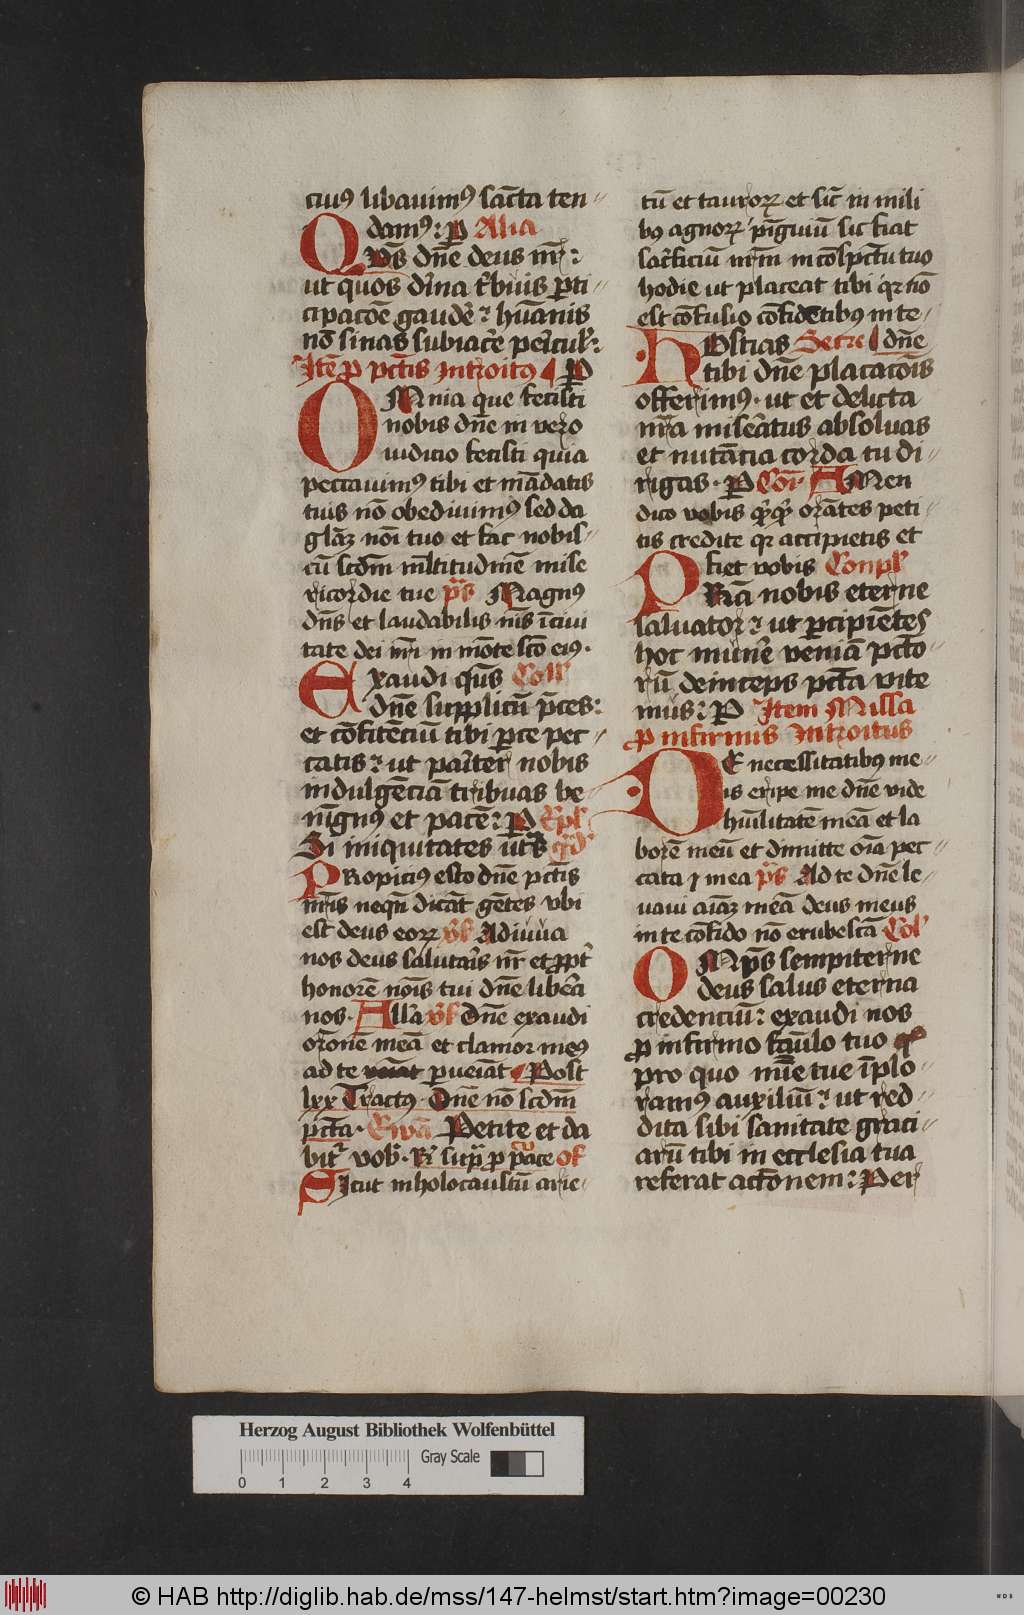 cius libauimꝰ sc̄ta ten-
damꝰ: p Alia
Qvs dn̄e deus nr̄:
ut quos diu̓na t̓buis p̲ti-
cipac̄oe gaude̓: hūanis
nō sinas subiace̓ pe̓iculꝭ:
Itē p pctīs Introitus P
OMnia que fecisti
nobis dn̄e in vero
iudicio fecisti quia
peccauimꝰ tibi et mādatis
tuis nō obediuimꝰ sed da
gl̄az nōi tuo et fac nobis-
cū scdm̄ ml̄titudinē mise
ricordie tue p̄s Magnꝰ
dn̄s et laudabilis nīs ī ciui
tate dei nr̄i in mōte sc̄o eiꝰ.
Exaudi qs̄ Coll
dn̄e supplicū p̄ces:
et cōfitēciū tibi p̲ce pec-
catis: ut parit̓ nobis
indulgēciā tribuas be
nīgnꝰ et pacē: P Epl
Si iniquitates ut s̄ Gr̄d
PRopiciꝰ esto dn̄e pctīs
nr̄is neqn̄ dicāt gētes vbi
est deus eoꝝ v̄s Adiuua
nos deus salutaris nr̄ et ꝓpt̓
honorē nōis tui dn̄e libe̓a
nos. All̄a v̄s Dn̄e exaudi
or̄onē meā et clamor meꝰ
ad te p̲ueiāt Post
lxx Tractꝰ. Dn̄e nō scdm̄
pct̄a. Ewā Petite et da
bit̓ vob̄. Ri sup̄ p pace of
Sicut in holocaustū arie-
tū et tauroꝝ et sic̄ in mili
bꝰ agnoꝝ pīguiū sic fiat
sac̓ficiū nr̄m in cōspctū tuo
hodie ut placeat tibi qꝛ nō
est cōfusio cōfidētibꝰ in te-
HOstias Secre dn̄e
tibi dn̄e placacōis
offerimꝰ. ut et delicta
nr̄a mise̓atus absoluas
et nutācia corda tu di-
rigas. P Com̄ AMen
dico vobis qͥqͥ orātes peti-
tis credite qꝛ accipietis et
fiet vobis Conplꝭ
PRia nobis eterne
saluator: ut p̲cipiētes
hoc mune̓ veniā pctō
rū deinceps pct̄a vite
mus: P Item Missa
p infirmis Introitus
DE necessitatibꝰ me-
is eripe me dn̄e vide
hūilitatē meā et la
borē meū et dimitte oīa pec-
cata mea p̄s Ad te dn̄e le-
uaui aīaz meā deus meus
in te cōfido nō erubescā Colꝭ
OMps̄ sempiterne
deus salus eterna
credenciū: exaudi nos
p infirmo famulo tuo
pro quo mīe tue īplo-
ramꝰ auxiliū: ut red-
dita sibi sanitate graci-
arū tibi in ecclesia tua
referat actōnem: Per
Herzog August Bibliothek Wolfenbüttel
Gray Scale
0 1 2 3 4
© HAB http://diglib.hab.de/mss/147-helmst/start.htm?image=00230